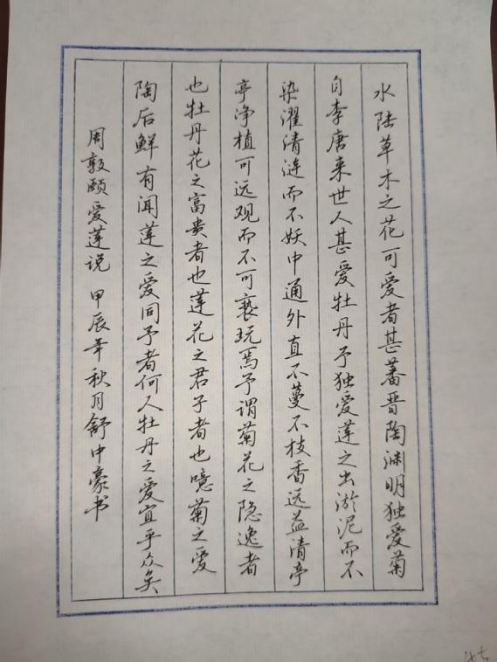 水陆草木之花可爱者甚蕃晋陶渊明独爱菊
自李唐来世人甚爱牡丹予独爱莲之出淤泥而不
染濯清涟而不妖中通外直不蔓不枝香远益清亭
亭净植可远观而不可亵玩焉予谓菊花之隐逸者
也牡丹花之富贵者也莲花之君子者也噫菊之爱
陶后鲜有闻莲之爱同予者何人牡丹之爱宜乎众矣
周敦颐爱莲说 甲辰年秋月舒中豪书